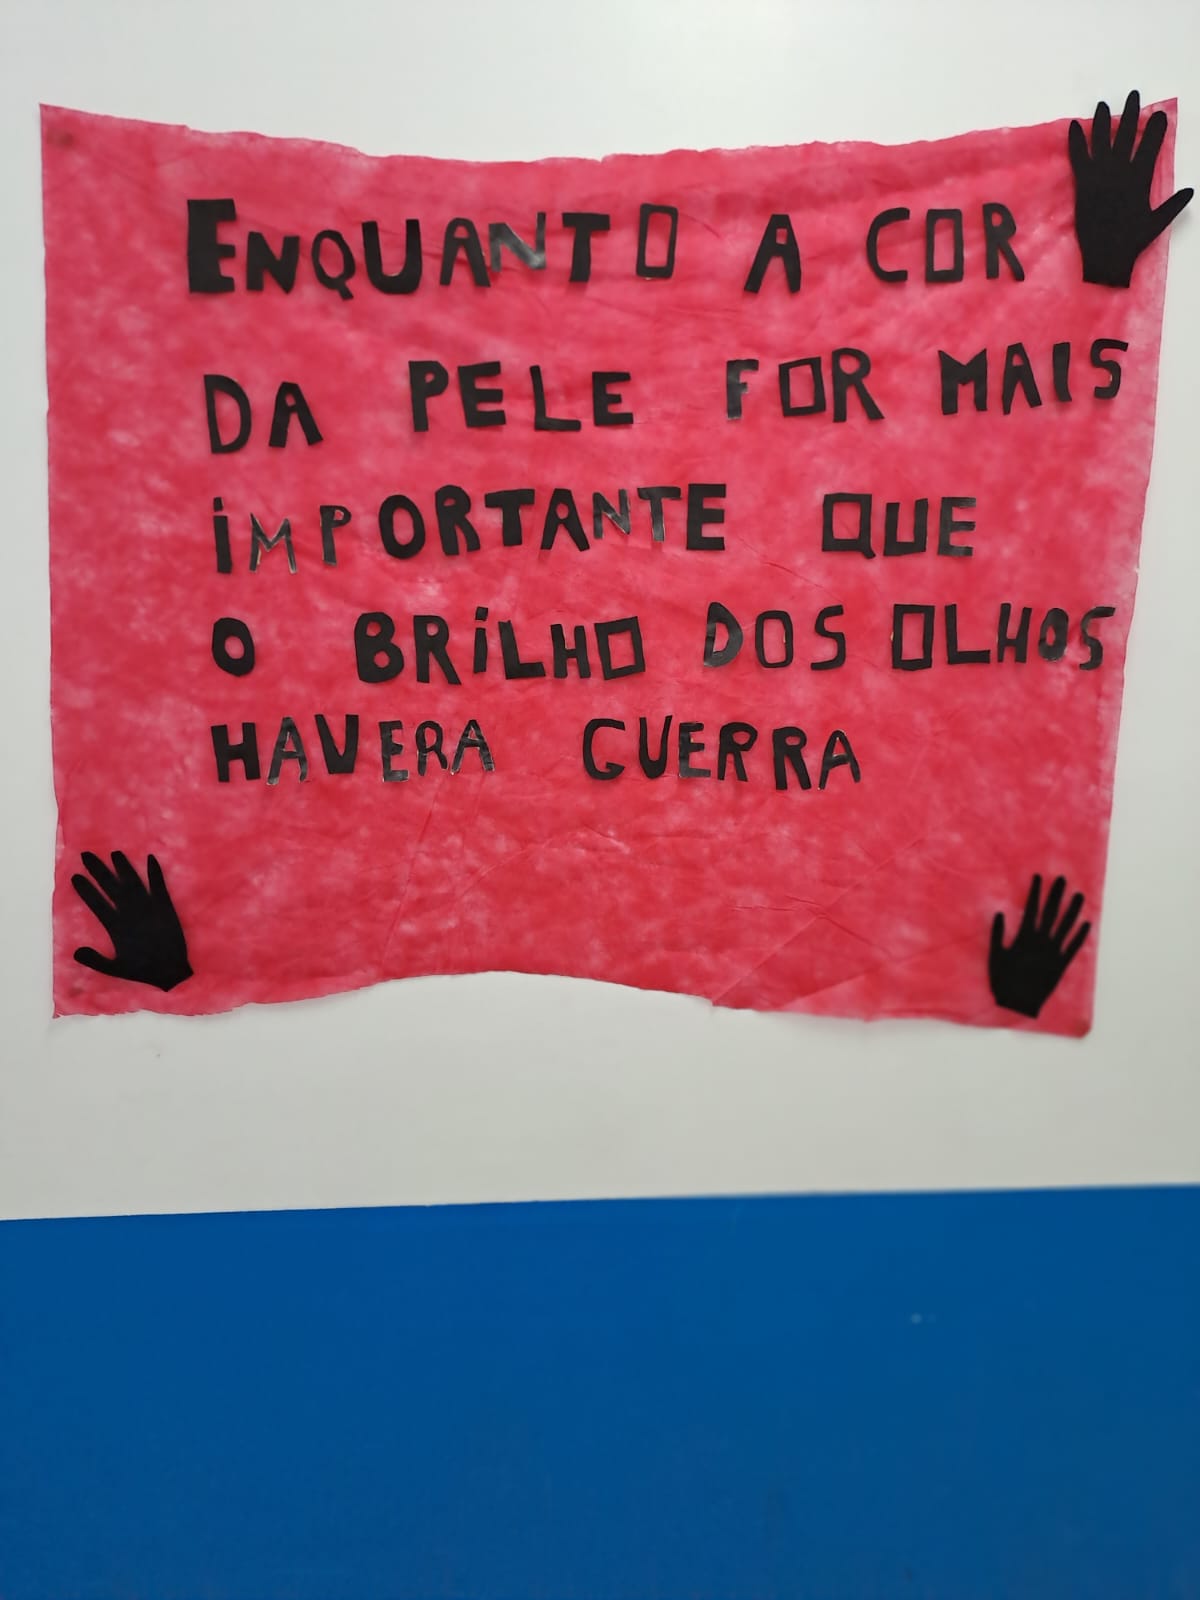 ENQUANTO A COR
DA PELE FOR MAIS
iMPORTANTE QUE
O BRiLHO DOS OLHOS
HAVERA GUERRA